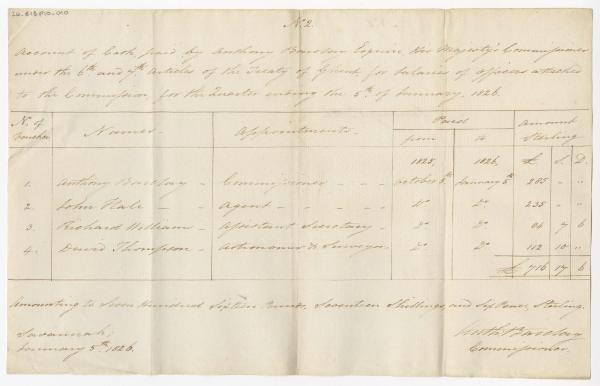 26.818P10.010
No. 2.
Account of Cash paid by Anthony Barclay Esquire His Majesty's Commissioner
under the 6th and 7th Articles of the Treaty of Ghent, for Salaries of Officers attached
to the Commission, for the Quarter ending the 5th of January, 1826.
No. of Voucher Names. Appointments. Period from to Amount Sterling
1825, 1826, £ S. D.
1. Anthony Barclay - Commissioner - - - October 5th January 5th 285 - "
2. John Hale - Agent - - - Do Do 235 - "
3. Richard William - Assistant Secretary - Do Do 84 7 6
4. David Thompson - Astronomer & Surveyor Do Do 112 10 "
£ 716 17 6
Amounting to Seven Hundred Sixteen Pounds, Seventeen Shillings, and Six Pence, Sterling.
Savannah,
January 5th 1826.
Anth: Barclay
Commissioner.